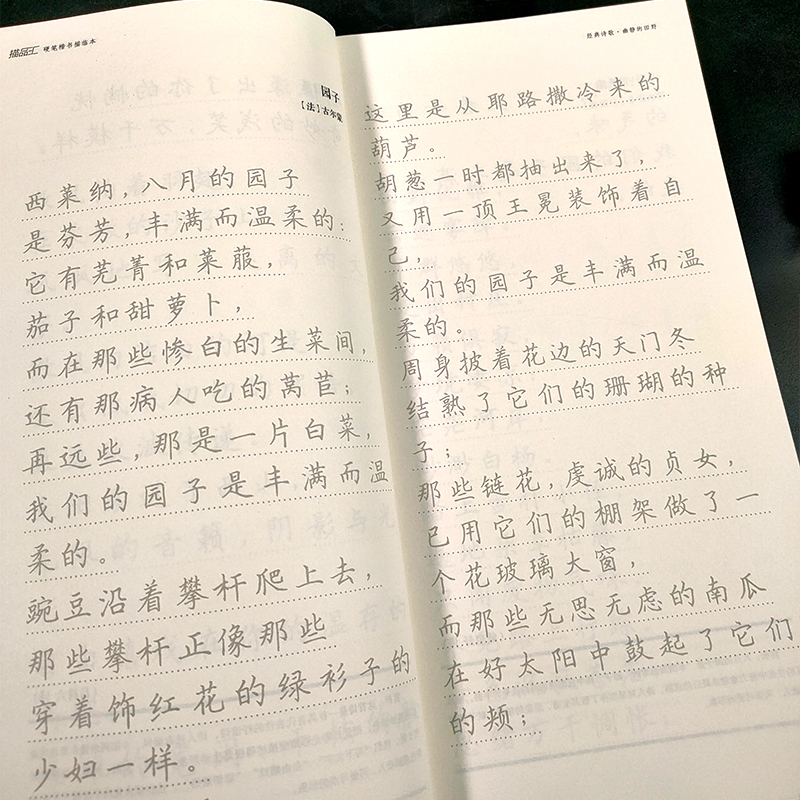 描品王 硬笔楷书描临本
园子
【法】古尔蒙
西莱纳，八月的园子
是芬芳，丰满而温柔的：
它有芜菁和莱菔，
茄子和甜萝卜，
而在那些惨白的生菜间，
还有那病人吃的莴苣；
再远些，那是一片白菜，
我们的园子是丰满而温
柔的。
豌豆沿着攀杆爬上去，
那些攀杆正像那些
穿着饰红花的绿衫子的
少妇一样。
经典诗歌·幽静的田野
这里是从耶路撒冷来的
葫芦。
胡葱一时都抽出来了，
又用一顶王冕装饰着自
己，
我们的园子是丰满而温
柔的。
周身披着花边的天门冬
结熟了它们的珊瑚的种
子；
那些链花，虔诚的贞女，
已用它们的棚架做了一
个花玻璃大窗，
而那些无思无虑的南瓜
在好太阳中鼓起了它们
的颊；